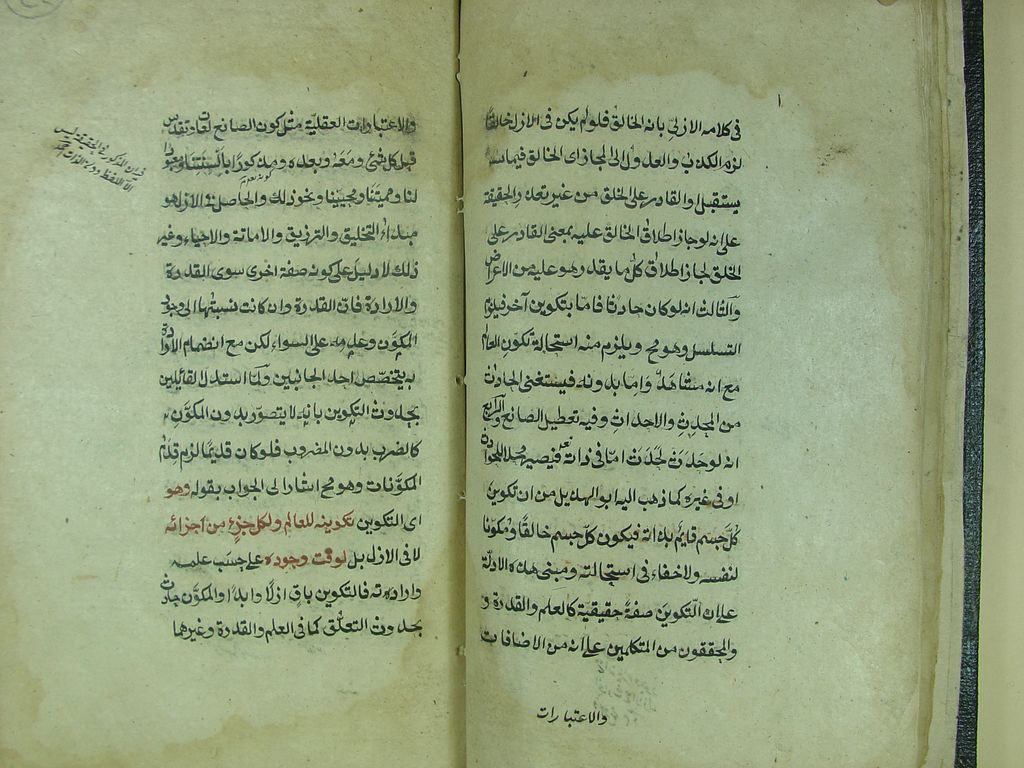 فى كلامه الازلى بانه الخالق فلو لم يكن فى الازل خالقا
لزم الكذب والعدول الى المجاز اى الخالق فيما
يستقبل او القادر على الخلق من غير تعذر الحقيقة
على انه لو جاز اطلاق الخالق عليه بمعنى القادر على
الخلق لجاز اطلاق كل ما يقدر هو عليه من الاعراض
والثالث انه لو كان حادثا فاما بتكوين آخر فيلزم
التسلسل وهو مح ويلزم منه استحالة تكون العالم
مع انه مشاهد واما بدونه فيستغنى الحادث
من المحدث والاحداث وفيه تعطيل الصانع والرابع
انه لو حدث لحدث اما فى ذاته فيصير محلا للحوادث
او فى غيره كما ذهب اليه ابو الهذيل من ان تكوين
كل جسم قايم بذاته فيكون كل جسم خالقا ومكونا
لنفسه ولا خفاء فى استحالته ومبنى هذه الادلة
على ان التكوين صفة حقيقية كالعلم والقدرة و
والمحققون من المتكلمين على انه من الاضافات
والاعتبارات
والاعتبارات العقلية مثل كون الصانع تعالى وتقدس
قبل كل شئ ومعه وبعده ومذكورا بالسنتنا ومعبودا
لنا ومميتنا ومحيينا ونحو ذلك والحاصل فى الازل هو
مبداء التخليق والترزيق والاماتة والاحياء وغير
ذلك لا دليل على كونه صفة اخرى سوى القدرة
والارادة فان القدرة وان كانت نسبتها الى وجود
المكون وعدمه على السواء لكن مع انضمام الارادة
به يتخصص احد الجانبين ولما استدل القائلين
بحدوث التكوين بانه لا يتصور بدون المكون
كالضرب بدون المضروب فلو كان قديما لزم قدم
المكونات وهو مح اشار الى الجواب بقوله وهو
اى التكوين تكوينه للعالم ولكل جزء من اجزائه
لا فى الازل بل لوقت وجوده على حسب علمه
وارادته فالتكوين باق ازلا وابدا والمكون حادث
بحدوث التعلق كما فى العلم والقدرة وغيرهما